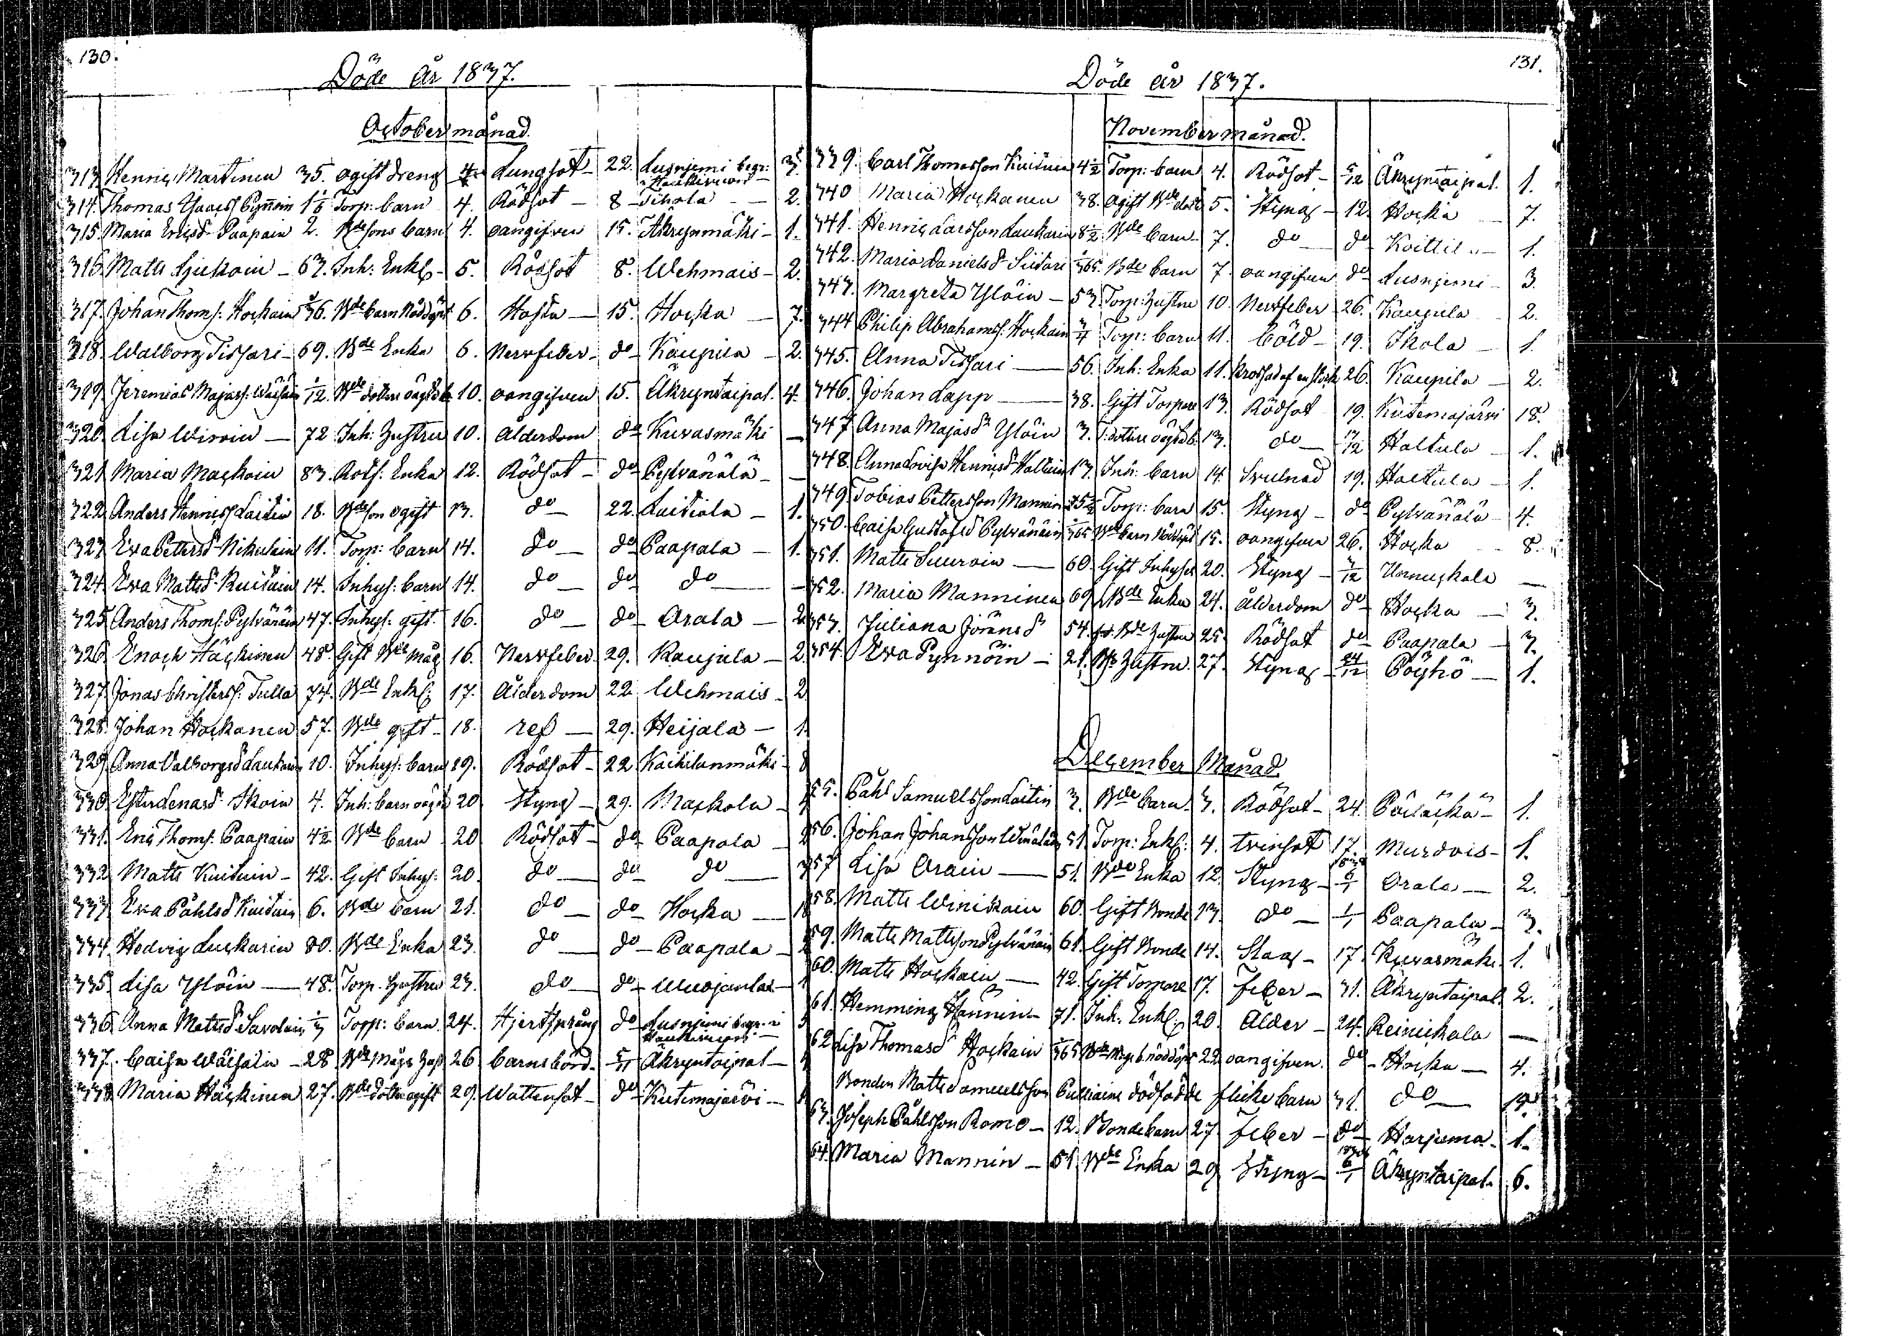 130.
Döde år 1837.
October månad.
313. Henric Martinen 35. ogift dreng 4. Lungsot - 22. Lusnjemi begr: i 3.
314. Thomas 1 1/6 Torp: barn 4. Rödsot - 8 - Tihola - 2.
315. Maria Ericsd. Paapain 2. Bdesons barn 4. oangifven 15. Äkrynmäki - 1.
316. Matts - 63. Inh: Enkl. 5. Rödsot 8. Wehmais - 2.
317. Johan Thoms. Hockain Bde barn Nöddöpt 6. Hosta - 15. Hocka - 7.
318. Walborg Tissari - 69. Bde Enka 6. Nervfeber - do - Kaupila - 2.
319. Jeremias Majass. 1/12 Bde dotters oägta b. 10. oangifven 15. Äkryntaipal. 4.
320. Lisa Wiroin - 72 Inh: Hustru 10. Ålderdom do Kuvasmäki -
321. Maria Mackoin 83. Rotf: Enka 12. Rödsot - do Pylvänälä -
322. Anders Henricss. Laitin 18. Bdeson ogift 13. do 22. Laitiala - 1.
323. Eva Petersd. Nikulain 11. Torp: barn 14. do - do Paapala - 1.
324. Eva Mattsd. Kuitain 14. Inhys: barn 14. do - do do -
325. Anders Thoms. Pylvänäin 47. Inhys: gift. 16. do - do - Orala - 2
326. Enoch Häckinen 48 Gift Bde måg 16. Nervfeber 29. Kaupila - 2.
327. Jonas Christerss. Tulla 74. Bde Enkl. 17. Ålderdom 22 Wehmais - 2
328. Johan Hockanen 57. Bde gift - 18. ref - 29. Heijala - 1.
329. Anna Valborgsd. Laukain 10. Inhys: barn 19. Rödsot - 22 Kaihilanmäki -
330. Ester Lenasd. Ikoin 4. Inh: barn oägta 20 Styng - 29. Mackola -
331. Eric Thoms. Paapain 4 1/2 Bde barn 20 Rödsot - do Paapala -
332 Matts Kuituin - 42. Gift Inhys: 20. do - do do -
333. Eva Påhlsd. Kuitain 6. Bde barn 21. do - do Hocka -
334. Hedvig Luckarin 80. Bde Enka 23. do - do - Paapala -
335. Lisa Ylöin - 48. Torp. Hustru 23. do - do -
336. Anna Mattsd. Savolain 1/3 Torp: barn 24. Hjertsprång do Lusnjemi begr: i
337. Caisa Wäisäin - 28 Bde Mågs Hust 26 barnsbörd - 5/11 Äkryntaipal -
338. Maria Häckinen 27. Bde dotter ogift 29. Wattusot - do - Kutemajärvi -
131.
Döde år 1837.
November månad.
339. Carl Thomasson Kuituin 4 1/2 Torp: barn 4. Rödsot - 5/12 Äkryntaipal. 1.
340 Maria Hockanen 38. ogift Bde dott 5. Styng - 12. Hocka - 7.
341. Henric Larsson Laukarin 8 1/2 Bde barn 7. do - do Koittil - 1.
342. Maria Danielsd. Siitari 1/365. Bde barn 7 oangifven do Lusnjemi - 3.
343. Margreta Ylöin - 53. Torp: Hustru 10. Nervfeber 26. Kaupila 2.
344 Philip Abrahams. Hockain 3/4 Torp: barn 11. Cold - 19. Ikola - 1.
345. Anna Tissari - 56. Inh: Enka 11. krossad af en stock 26. Kaupila - 2.
346. Johan Lapp - 38. Gift Torpare 13. Rödsot 19. Kutemajärvi 18.
347 Anna Majasd. Ylöin 3. T: dotters oägta b. 13. do - Haltula - 1.
348. Anna Lovisa Henricsd. Haltuin 13. Inh: barn 14. Svulnad 19. Haltula - 1.
349. Tobias Pettersson Mannin Torp: barn 15. Styng - do Pylvänälä - 4.
350. Caisa Gustafsd. Pylvänäin 1/365 Bde barn Nöddöpt 15. oangifven 26. Hocka 8.
351. Matts Suuroin - 60. Gift Inhyses 20. Styng - 3/12 Unnuckala -
352. Maria Manninen 69. Bde Enka 24. Ålderdom do Hocka - 3.
353. Juliana Jöransd. 54. Bde Hustru 25. Rödsot do Paapala - 3.
354. Eva Pynnöin - 21. Hustru 27. Styng - 24/12 Pöyhö - 1.
December Månad.
55. Påhl Samuelsson Laitin 3. Bde barn. 3. Rödsot - 24. 1.
56. Johan Johansson 51 Torp: Enkl: 4. tvinsot 17. Murdois - 1.
57 Lisa Orain - 51. Bde Enka 12. Styng - 6/1 Orala - 2.
58. Matts Winikain 60. Gift Bonde 13. do - 1/1 Paapala - 3.
59. Matts Mattsson Pylvänäin 61. Gift Bonde 14. Slag - 17. Kuvasmäki. 1.
60. Matts Hockain - 42. Gift Torpare 17. Feber - 31. Äkryntaipal. 2.
61. Hemming Hännin - 71. Inh: Enkl. 20. Ålder - 24. Reinickala -
62 Lisa Thomasd. Hockain 1/365 Bde Mågs b. nöddöpt 22. oangifven. do - Hocka - 4.
Bonden Matts Samuelsson dödfödde flicke barn 31. do -
63. Joseph Påhlsson Romo - 12. Bonde barn 27. Feber - do - Harjuma - 1.
64. Maria Mannin - 51. Bde Enka 29 Styng - 6/1 Äkryntaipal. 6.